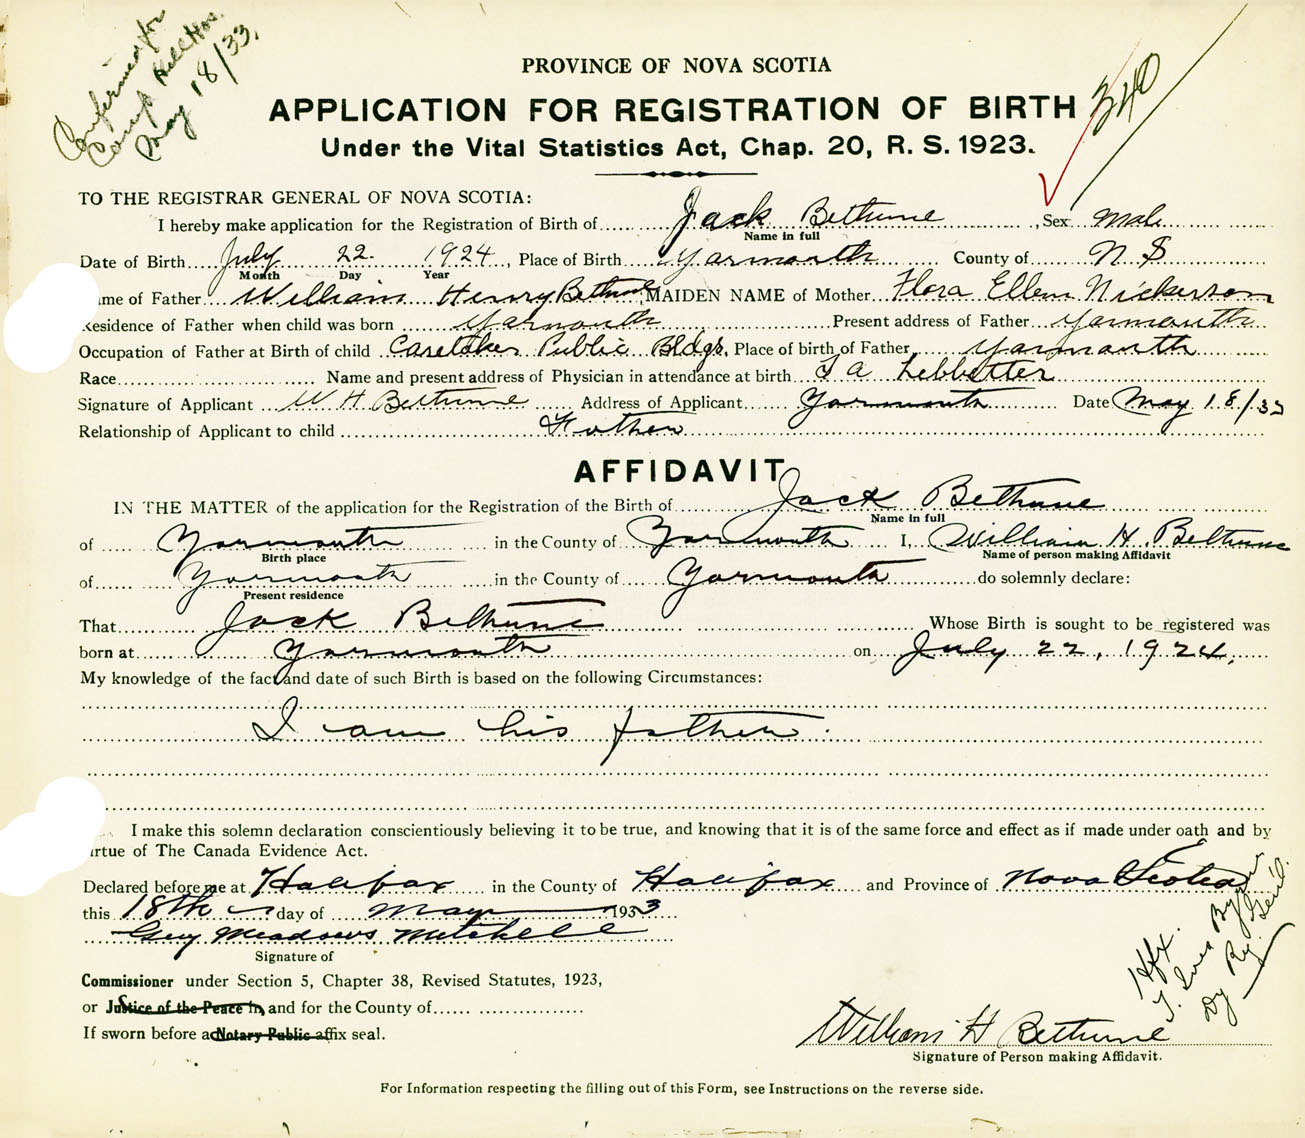 Confirmed for
Camp Hill Hos.
May 18/33.
340
PROVINCE OF NOVA SCOTIA
APPLICATION FOR REGISTRATION OF BIRTH
Under the Vital Statistics Act, Chap. 20, R. S. 1923.
TO THE REGISTRAR GENERAL OF NOVA SCOTIA:
I hereby make application for the Registration of Birth of Jack Bethune, Sex Male
Name in full
Date of Birth July 22 1924, Place of Birth Yarmouth County of N S
Month Day Year
ame of Father William Henry Bethune MAIDEN NAME of Mother Flora Ellen Nickerson
Residence of Father when child was born Yarmouth Present address of Father Yarmouth
Occupation of Father at Birth of child Caretaker Public Bldgs. Place of birth of Father Yarmouth
Race Name and present address of Physician in attendance at birth Lebbetter
Signature of Applicant W H Bethune Address of Applicant Yarmouth Date May 18/33
Relationship of Applicant to child Father
AFFIDAVIT
IN THE MATTER of the application for the Registration of the Birth of Jack Bethune
Name in full
of Yarmouth in the County of Yarmouth I, William H. Bethune
Birth place Name of person making Affidavit
of Yarmouth in the County of Yarmouth do solemnly declare:
Present residence
That Jack Bethune Whose Birth is sought to be registered was
born at Yarmouth on July 22, 1924.
My knowledge of the fact and date of such Birth is based on the following Circumstances:
I am his father.
I make this solemn declaration conscientiously believing it to be true, and knowing that it is of the same force and effect as if made under oath and by
irtue of The Canada Evidence Act.
Declared before me at Halifax in the County of Halifax and Province of Nova Scotia
this 18th day of May 1933
Guy Meadows Mitchell
Signature of
Commissioner under Section 5, Chapter 38, Revised Statutes, 1923,
or Justice of the Peace in, and for the County of
If sworn before a Notary Public affix seal.
Hfx.
Ives Byrne
Dy Rg. Gen'l.
William H Bethune
Signature of Person making Affidavit.
For Information respecting the filling out of this Form, see Instructions on the reverse side.